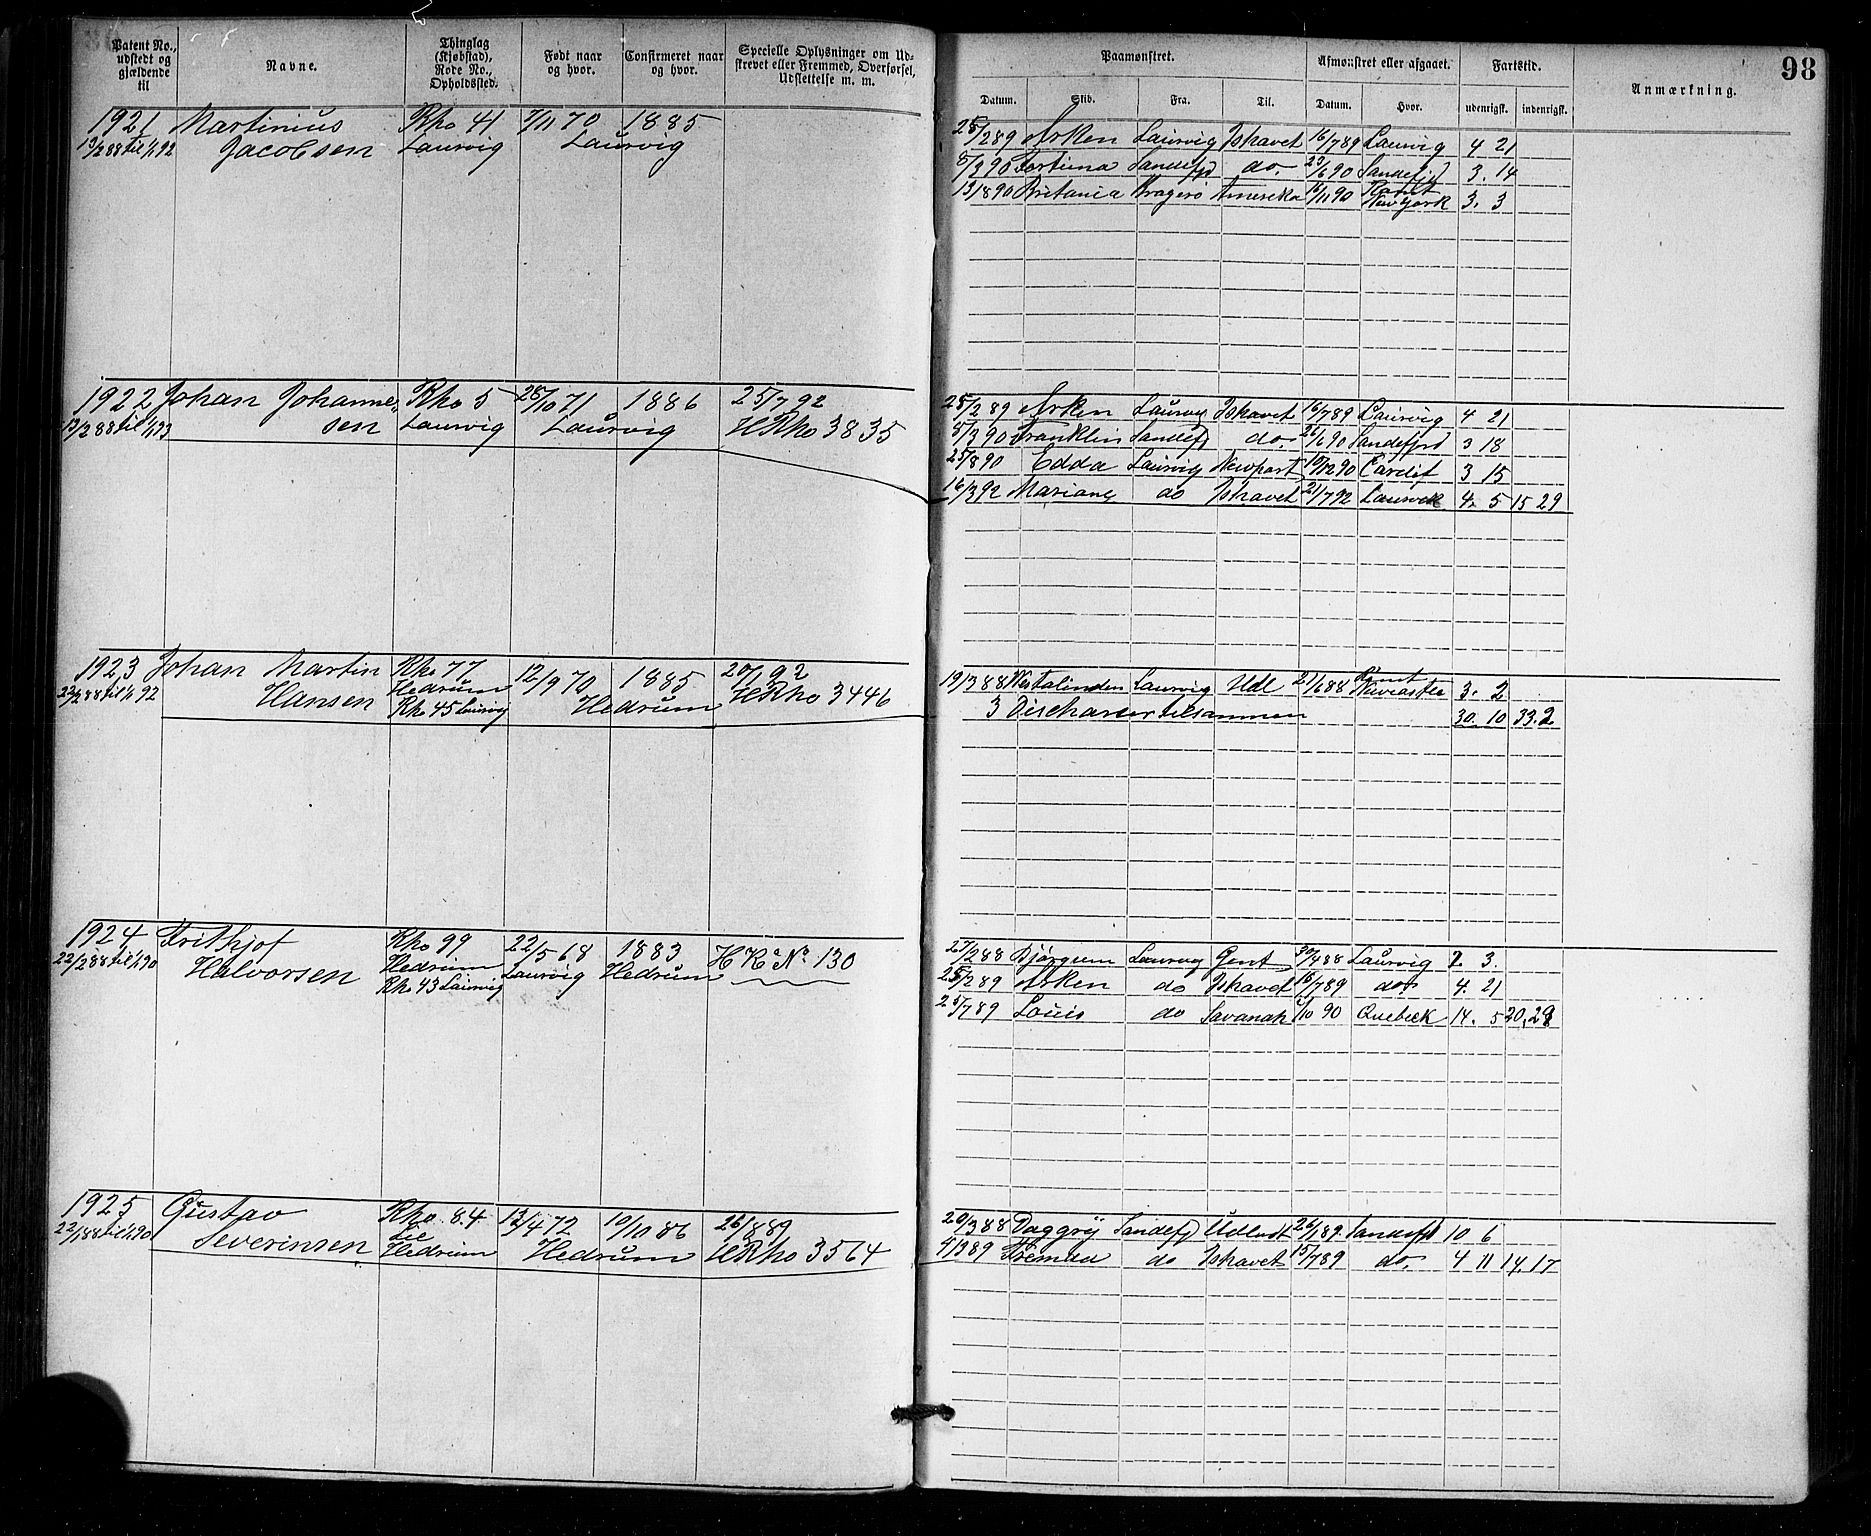 Patent No., udstedt og gjældende til
Navne.
Thinglag (Kjøbstad), Rode No., Opholdssted.
Født naar og hvor.
Confirmeret naar og hvor.
Specielle Oplysninger om Udskrevet eller Fremmed, Overførsel, Udslettelse m. m.
Paamønstret.
Afmønstret eller afgaaet.
Fartstid.
Anmærkning.
98
Datum.
Skib.
Fra.
Til.
Datum.
Hvor.
udenrigsk.
indenrigsk.
1921 Martinius Rho 41 7/11 70 1885
13/2 88 til 1/1 92 Jacobsen Laurvig Laurvig
25/2 89 Arken Laurvig Ishavet 16/7 89 Laurvig 4 21
5/3 90 Fortuna Sandefjd do. 23/6 90 Sandefjd 3. 14
13/8 90 Britania Kragerø Amerika 15/11 90 Rømt New York 3. 3
1922 Johan Johanne- Rho 5 28/10 71 1886 25/7 92
13/2 88 til 1/1 93 sen Laurvig Laurvig HRho 3835
25/2 89 Arken Laurvig Ishavet 16/7 89 Laurvig 4 21
5/3 90 Franklin Sandefj do. 26/6 90 Sandefjrd 3 18
25/8 90 Edda Laurvig Newport 10/12 90 Cardif 3 15
16/3 92 Mariane do Ishavet 21/7 92 Laurvik 4. 5 15 29
1923 Johan Martin Rho 77 12/9 70 1885 20/1 92
22/2 88 til 1/1 92 Hansen Hedrum Hedrum HRho 3446
Rho 45 Laurvig
19/3 88 Laurvig Udl 21/6 88 Rømt Newcastle 3. 2
3 Discharser tilsammen 30. 10 33. 2
1924 Frithjof Rho 99 22/5 68 1883 H R No 130
22/2 88 til 1/1 90 Halvorsen Hedrum Laurvig Hedrum
Rho 43 Laurvig
27/2 88 Laurvig Gent 30/4 88 Laurvig 2. 3.
25/2 89 Arken do Ishavet 16/7 89 do 4. 21
25/7 89 Louis do Savanah 1/10 90 Quebeck 14. 5 20. 29
1925 Gustav Rho 84 13/4 72 10/10 86 26/8 89
22/1 88 til 1/1 90 Severinsen Lie Hedrum Hedrum HRho 3564
20/3 88 Daggry Sandefj Udlandt 26/1 89 Sandefjd 10 6
4/3 89 Fremad do Ishavet 15/7 89 do. 4 11 14. 17